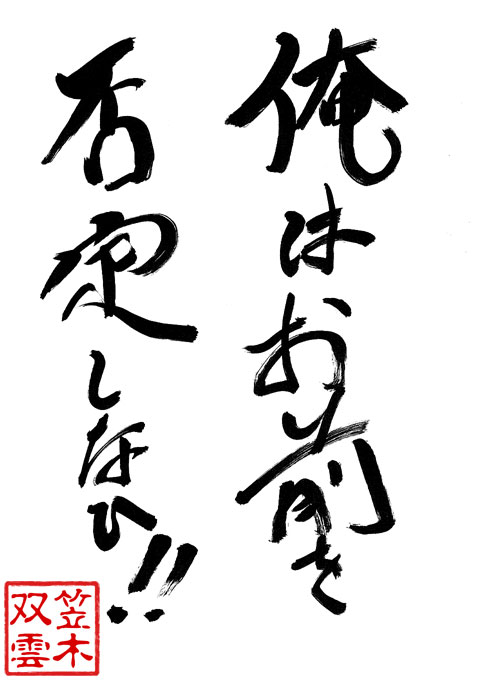 俺はお前を
否定しなひ!!
笠木
双雲